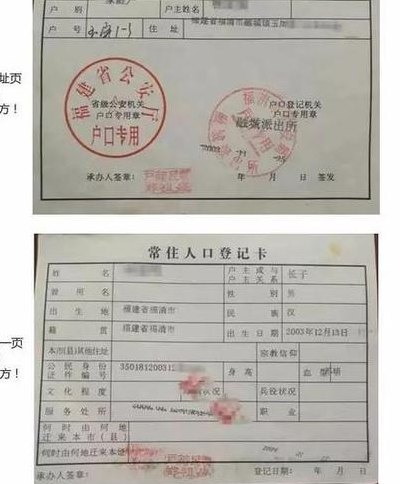 户别 家庭户 户主姓名
户号 住址 福建省福清市融城镇
址页
方！
福建省公安厅
省级公安机关
户口专用章
户口专用
户口登记机关
户口专用章
融城派出所
承办人签章： 年 月 日 签发
常住人口登记卡
姓名 户主或与户主关系 长子
曾用名 性别 男
出生地 福建省福清市 民族 汉
籍贯 福建省福清市 出生日期 2003年12月13日
一页
方！
本市(县)其他住址 宗教信仰
公民身份证件编号 3501812003 身高 血型
文化程度 婚姻状况 兵役状况
服务处所 职业
何时由何地迁来本市(县)
何时由何地迁来本址
承办人签章： 登记日期： 年 月 日